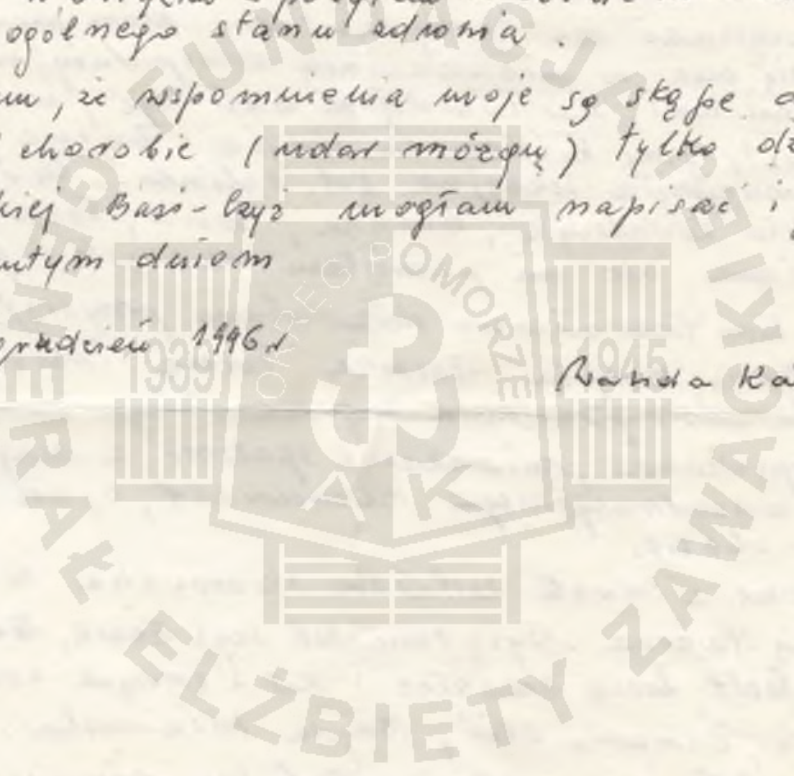 ogólnego stanu zdrowia.
że wspomnienia moje są skąpe
chorobie (udar mózgu) tylko
mogłam napisać i
dniom
grudzień 1996 r
Wanda
FUNDACJA
GENERAŁ ELŻBIETY ZAWACKIEJ
OKRĘG POMORZE
1939
1945
AK